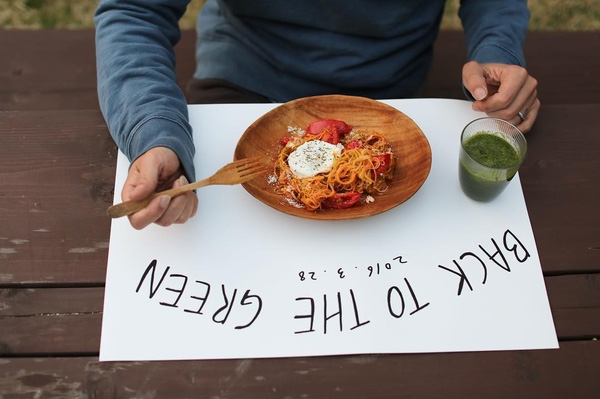 BACK TO THE GREEN
2016. 3. 28